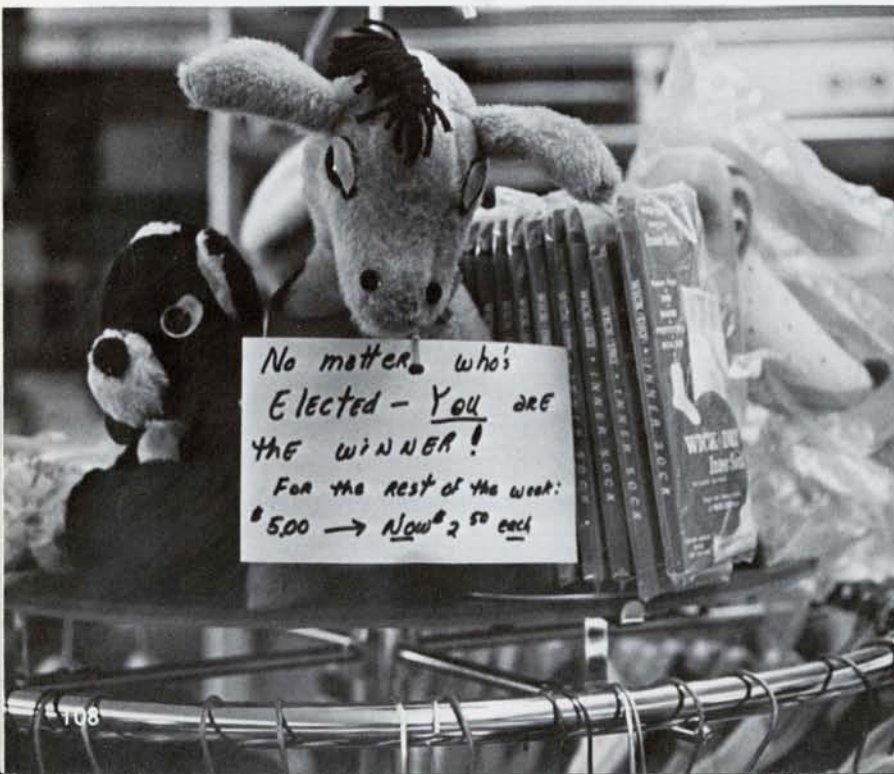 No matter who's
Elected - You are
the winner!
For the rest of the week:
$5.00 → Now $2 50 each
WICK DRY
Inner Sock
WICK DRY • INNER SOCK
INNER SOCK
INNER SOCK
108